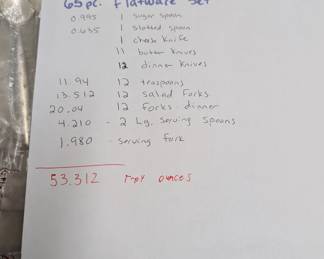 65 pc. Flatware Set
0.995 1 sugar spoon
0.635 1 slotted spoon
1 cheese knife
11 butter knives
12 dinner knives
11.94 12 teaspoons
13.512 12 salad forks
20.04 12 forks-dinner
4.210 - 2 Lg. serving spoons
1.980 - serving fork
53.312 troy ounces